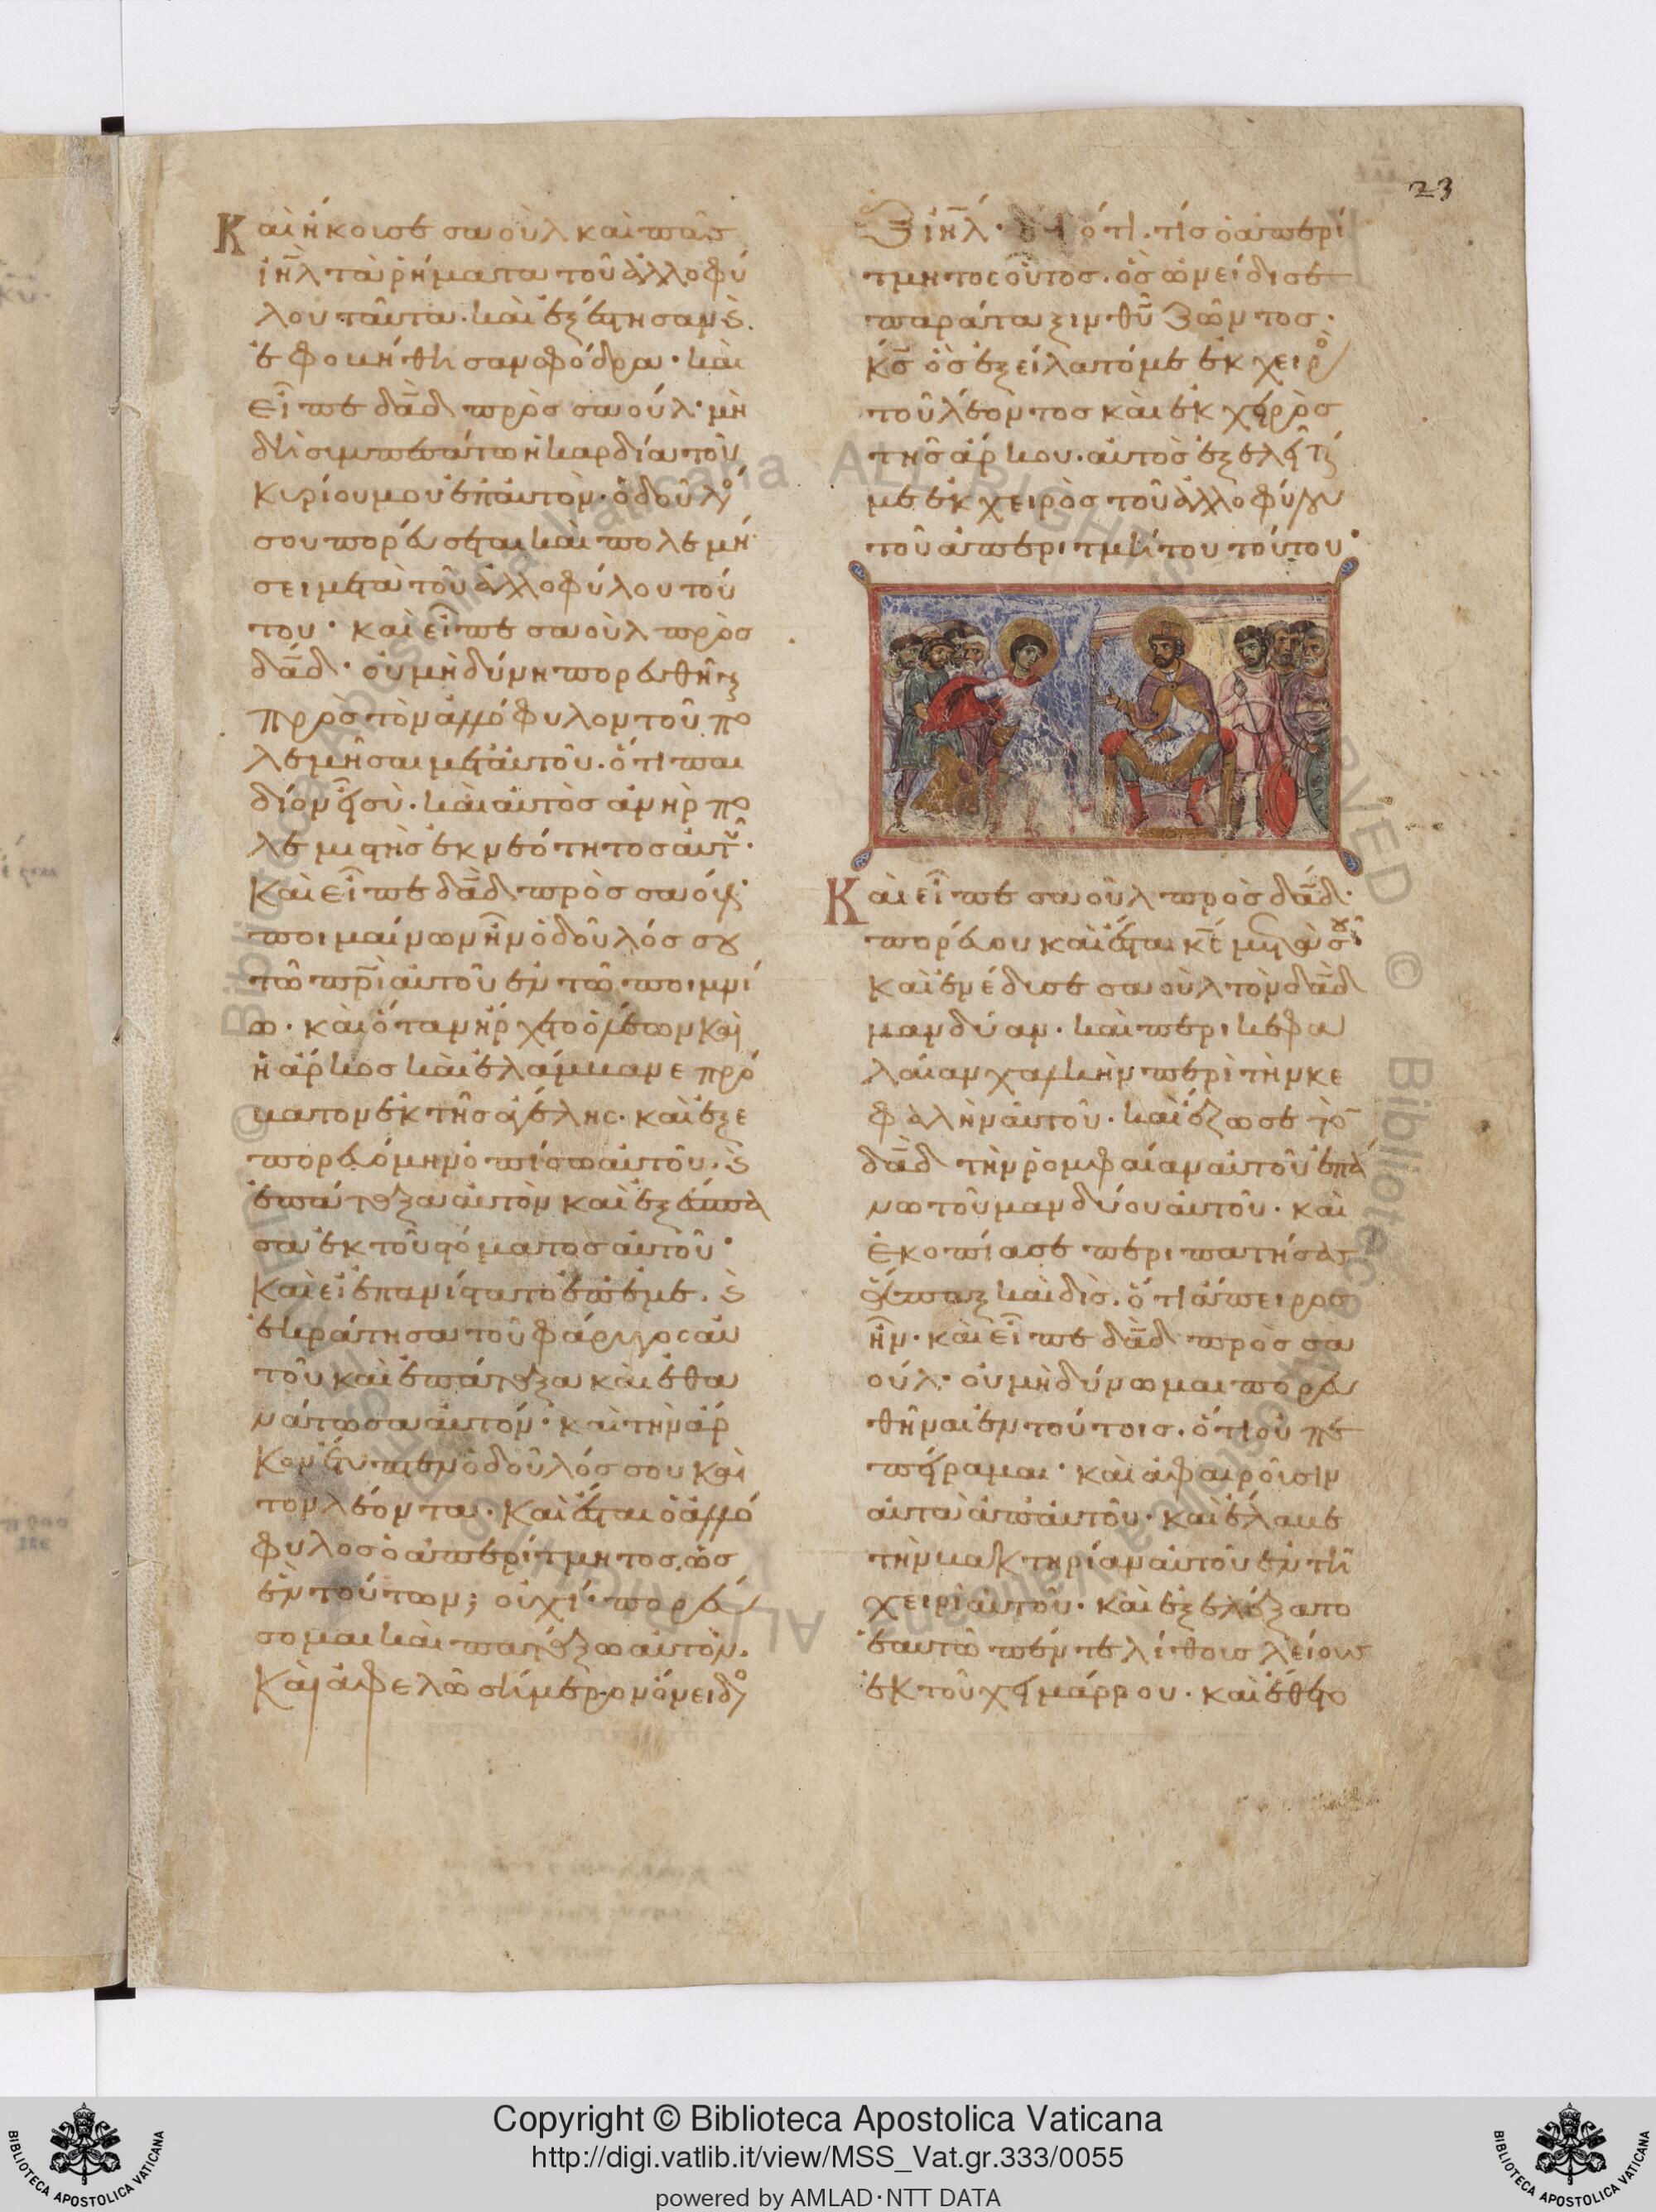 23
Καὶ ἤκουσε σαοὺλ καὶ πᾶς
ἰη̅λ τὰ ῥήματα τοῦ ἀλλοφύ
λου ταῦτα· καὶ ἐξέστησαν ϗ̀
ἐφοβήθησαν σφόδρα· καὶ
εἶπε δα̅δ πρὸς σαούλ· μὴ
δὴ συμπεσάτω ἡ καρδία τοῦ
κυρίου μου ἐπ αὐτόν· ὁ δοῦλο
σου πορεύσεται καὶ πολεμή
σει μετὰ τοῦ ἀλλοφύλου τού
του· καὶ εἶπε σαοὺλ πρὸς
δα̅δ· οὐ μὴ δύνη πορευθῆναι
πρὸς τὸν ἀλλόφυλον τοῦ πο
λεμῆσαι μετ αὐτοῦ· ὅτι παι
δίον εἶ σύ· καὶ αὐτὸς ἀνὴρ πο
λεμιστὴς ἐκ νεότητος αὐτοῦ·
Καὶ εἶπε δα̅δ πρὸς σαούλ·
ποιμαίνων ἦν ὁ δοῦλός σου
τῶ πρ̅ὶ αὐτοῦ ἐν τῶ ποιμνί
ω· καὶ ὅταν ἤρχετο ὁ λέων καὶ
ἡ ἄρκος καὶ ἐλάμβανε πρό
βατον ἐκ τῆς ἀγέλης· καὶ ἐξε
πορευόμην ὀπίσω αὐτοῦ· ϗ̀
ἐπάταξα αὐτὸν καὶ ἐξέσπα
σα ἐκ τοῦ στόματος αὐτοῦ·
Καὶ εἰ ἐπανίστατο ἐπ ἐμέ· ϗ̀
ἐκράτησα τοῦ φάρυγγος αὐ
τοῦ καὶ ἐπάταξα καὶ ἐθα
νάτωσα αὐτόν· καὶ τὴν ἄρ
κον ἔτυπτεν ὁ δοῦλός σου καὶ
τὸν λέοντα· καὶ ἔσται ὁ ἀλλό
φυλος ὁ ἀπερίτμητος, ὡς
ἓν τούτων; οὐχί· πορεύ
σομαι καὶ πατάξω αὐτόν·
Καὶ ἀφελῶ σήμερον ὄνειδο
ἐξ ἰη̅λ· διότι τίς ὁ ἀπερί
τμητος οὗτος· ὃς ὠνείδισε
παράταξιν θυ̅ ζῶντος·
κς̅ ὃς ἐξείλατό με ἐκ χειρὸ
τοῦ λέοντος καὶ ἐκ χειρὸς
τῆς ἄρκου· αὐτὸς ἐξελεῖται
με ἐκ χειρὸς τοῦ ἀλλοφύλου
τοῦ ἀπεριτμήτου τούτου·
Καὶ εἶπε σαοὺλ πρὸς δα̅δ·
πορεύου καὶ ἔσται κς̅ μετὰ σοῦ·
Καὶ ἐνέδυσε σαοὺλ τὸν δα̅δ
μανδύαν· καὶ περικεφα
λαίαν χαλκῆν περὶ τὴν κε
φαλὴν αὐτοῦ· καὶ ἔζωσε τὸν
δα̅δ τὴν ῥομφαίαν αὐτοῦ ἐπά
νω τοῦ μανδύου αὐτοῦ· καὶ
ἐκοπίασε περιπατήσας
ἅπαξ καὶ δίς· ὅτι ἄπειρος
ἦν· καὶ εἶπε δα̅δ πρὸς σα
ούλ· οὐ μὴ δύνωμαι πορευ
θῆναι ἐν τούτοις· ὅτι οὐ πε
πείραμαι· καὶ ἀφαιροῦσιν
αὐτὰ ἀπ αὐτοῦ· καὶ ἔλαβε
τὴν βακτηρίαν αὐτοῦ ἐν τῆ
χειρὶ αὐτοῦ· καὶ ἐξελέξατο
ἑαυτῶ πέντε λίθους λείους
ἐκ τοῦ χειμάρρου· καὶ ἔθετο
Copyright © Biblioteca Apostolica Vaticana
http://digi.vatlib.it/view/MSS_Vat.gr.333/0055
powered by AMLAD·NTT DATA
BIBLIOTECA APOSTOLICA VATICANA
BIBLIOTECA APOSTOLICA VATICANA